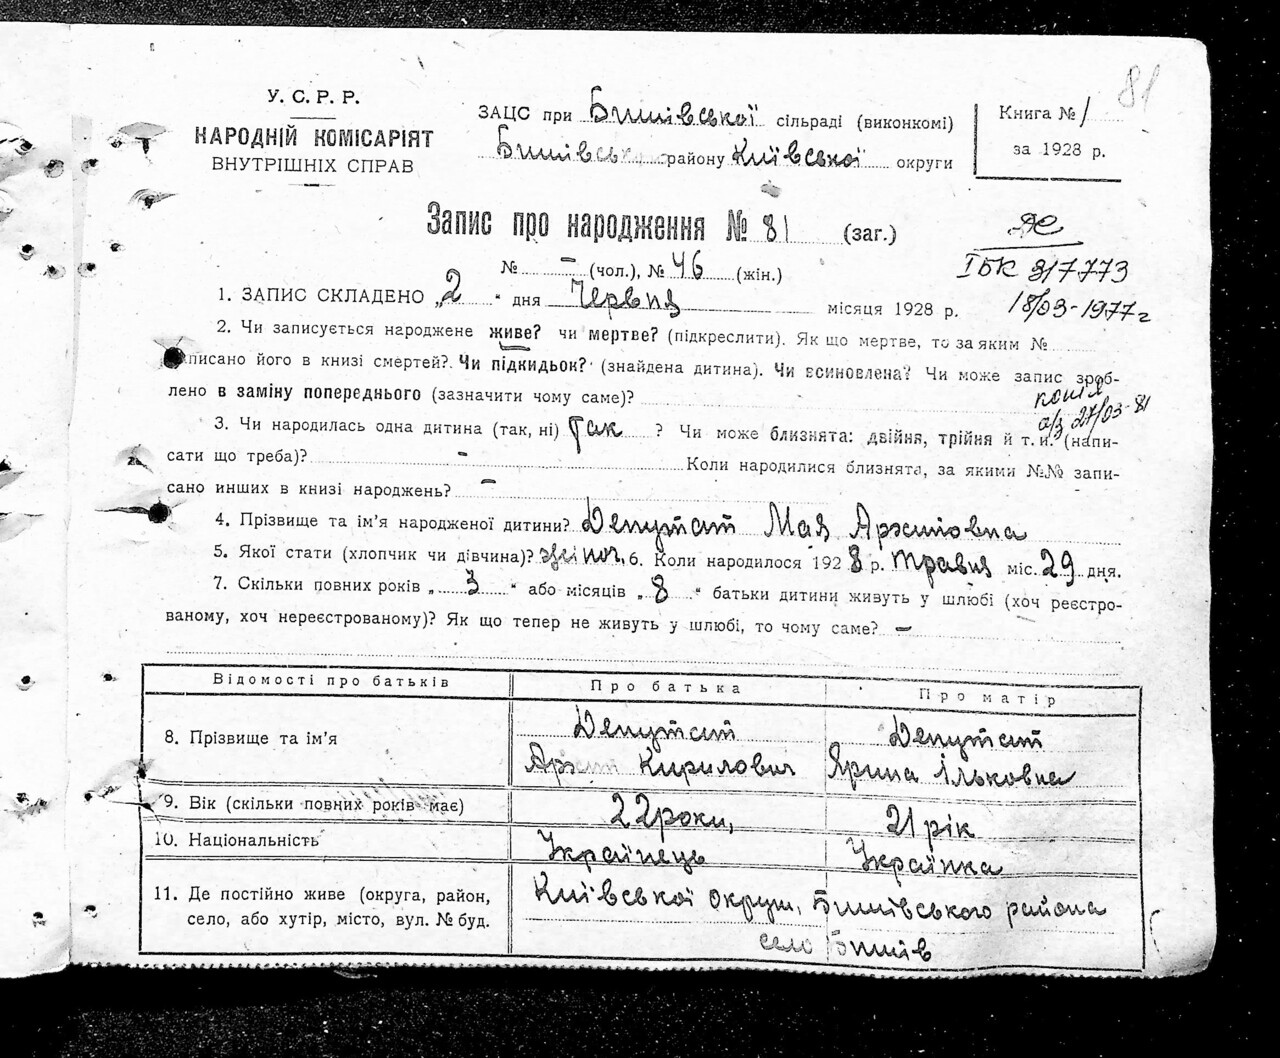 81
У. С. Р. Р.
НАРОДНІЙ КОМІСАРІЯТ
ВНУТРІШНІХ СПРАВ
ЗАЦС при Бишівської сільраді (виконкомі)
Бишівськ району Київської округи
Книга № 1
за 1928 р.
Запис про народження № 81 (заг.)
№ – (чол.), № 46 (жін.)
ІБК 317773
18/03-1977 г
1. ЗАПИС СКЛАДЕНО „2“ дня Червня місяця 1928 р.
2. Чи записується народжене живе? чи мертве? (підкреслити). Як що мертве, то за яким №
записано його в книзі смертей? Чи підкидьок? (знайдена дитина). Чи всиновлена? Чи може запис зроб-
лено в заміну попереднього (зазначити чому саме)?
копія
27/03-81
3. Чи народилась одна дитина (так, ні) Так ? Чи може близнята: двійня, трійня й т. и. (напи-
сати що треба)? – Коли народилися близнята, за якими №№ запи-
сано инших в книзі народжень? –
4. Прізвище та ім’я народженої дитини? Депутат Мая Архиповна
5. Якої стати (хлопчик чи дівчина)? жіноч. 6. Коли народилося 1928 р. Травня міс. 29 дня.
7. Скільки повних років „3“ або місяців „8“ батьки дитини живуть у шлюбі (хоч реєстро-
ваному, хоч нереєстрованому)? Як що тепер не живуть у шлюбі, то чому саме? –
Відомості про батьків Про батька Про матір
8. Прізвище та ім’я Депутат Архип Кирилович Депутат Ярина Ільковна
9. Вік (скільки повних років має) 22 роки, 21 рік
10. Національність Українець Українка
11. Де постійно живе (округа, район, Київської округи, Бишівського района
село, або хутір, місто, вул. № буд. село Бишів